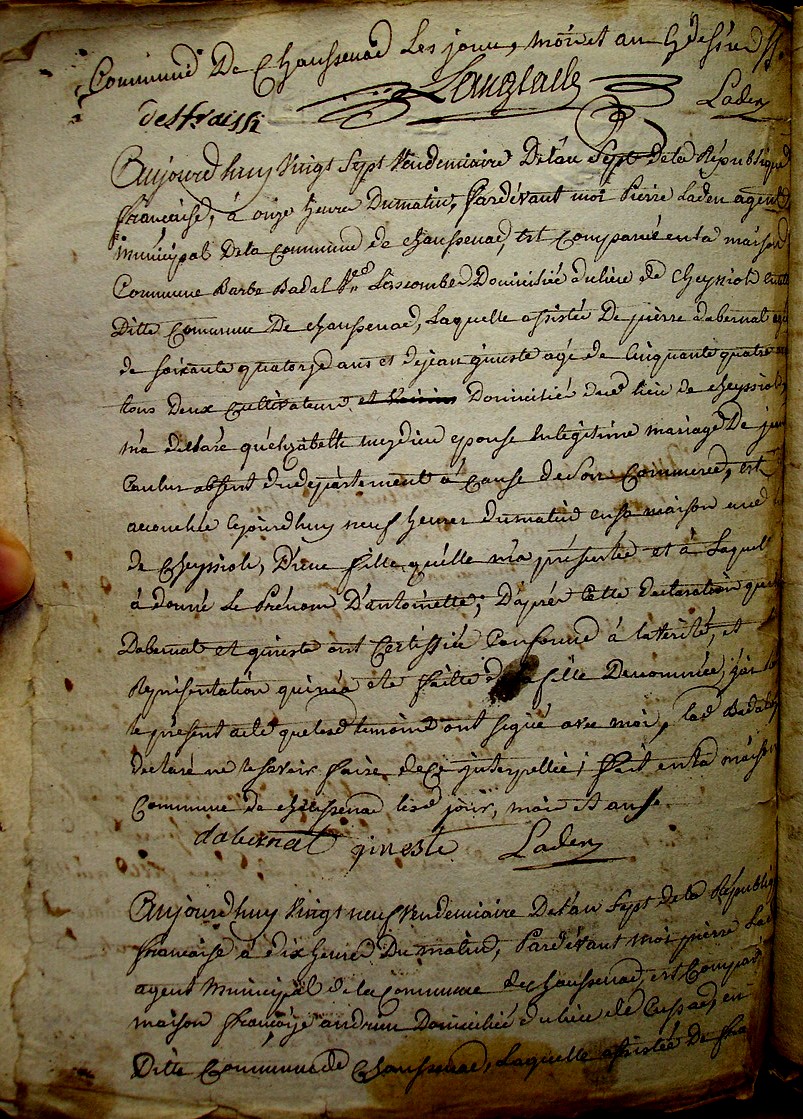 Commune De Chaussenac Les jour, mois et an
Langlade
Laden
desfraissi
Aujourdhuy Vingt Sept Vendemiaire De l'an Sept de la République
française, à onze heures Dumatin, Pardevant moi Pierre Laden agent
municipal Dela Commune de chaussenac, Est Comparüe enla maison
Commune Barbe Badal Lescombes Domiciliée du lieu de Cheyssiol
Ditte Commune De chaussenac, Laquelle assistée De pierre dabernat agé
de soixante quatorze ans et de jean gineste agé de Cinquante quatre
tous Deux Cultivateurs Domiciliés dud lieu de cheyssiol
m'a déclaré qu'elizabeth épouse en légitime mariage De
absent dudepartement à Cause deson Commerce, est
accouchée aujourdhuy neuf heures dumatin ensa maison aud
de Cheyssiol, D'une fille qu'elle m'a présentée et à Laquelle
à donné Le Prénom D'antoinette; D'après Cette declaration que
Dabernat et gineste ont Certiffiée Conforme à la vérité, et
Représentation qui m'a été faitte de la fille Denommée; j'ai
le présent acte que lesd temoins ont signé avec moi, lad Badal
declaré ne le savoir faire de Ce interpellée; fait enla maison
Commune de chaussenac lesd jour, mois et an
dabernat gineste Laden
Aujourdhuy Vingt neuf Vendemiaire De l'an Sept de la République
française à dix heures Du matin, Pardevant moi pierre
agent Municipal de la Commune de Chaussenac, est
maison françoise andrieu Domiciliée du lieu de Cussac, en
Ditte Commune de Chaussenac, Laquelle assistée De